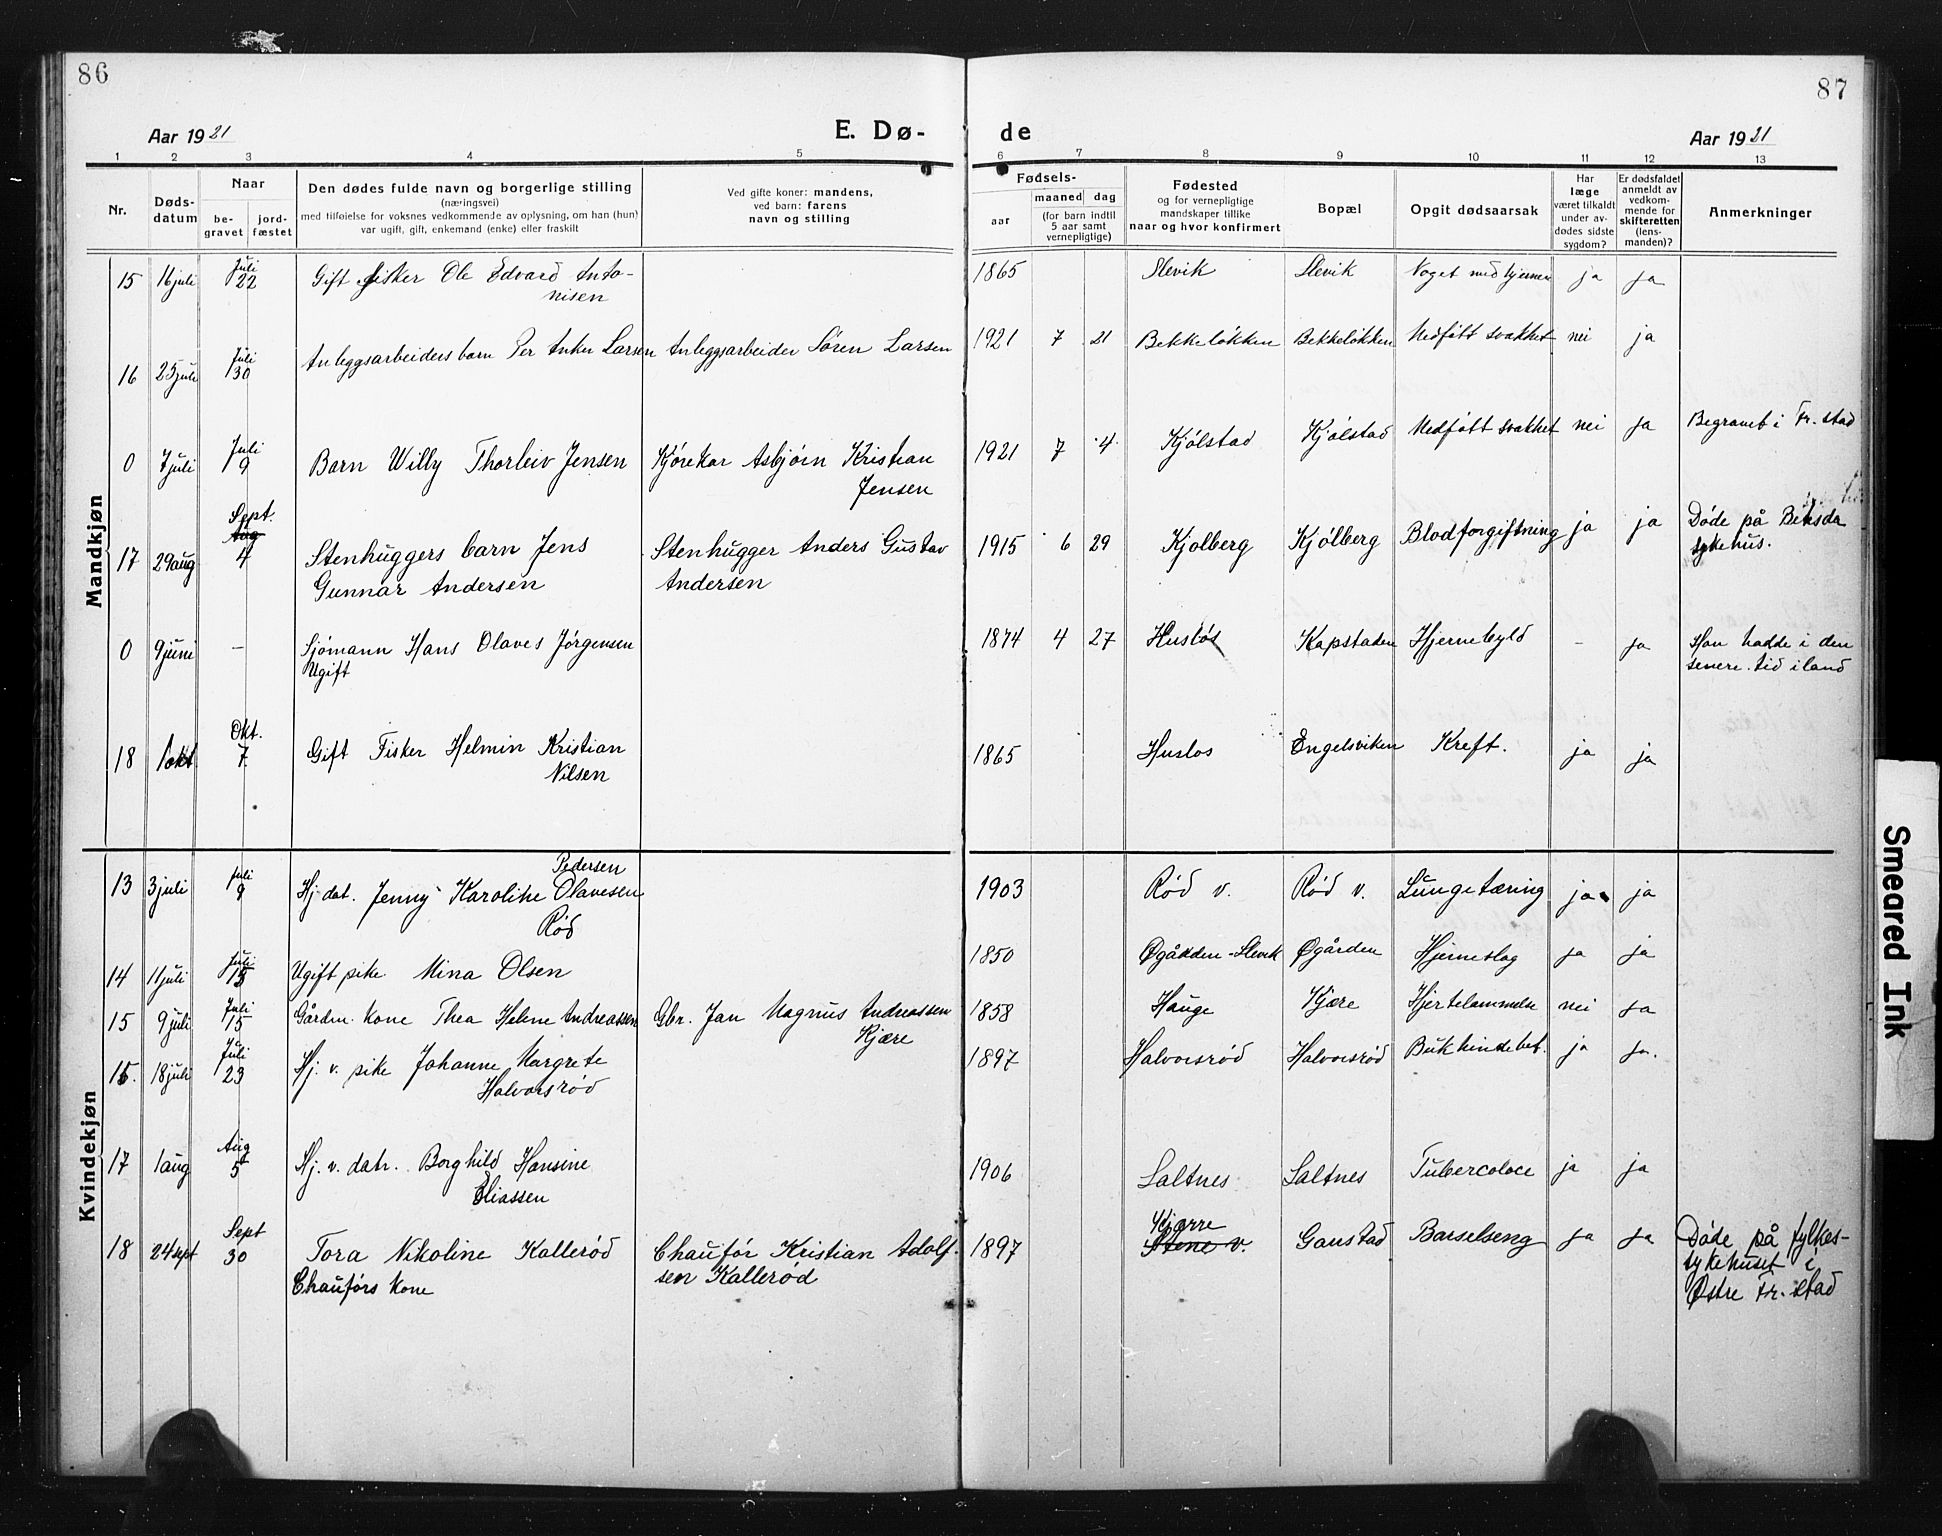 86
87
Aar 1921
E. Dø-
de
Aar 1921
1 2 3 4 5 6 7 8 9 10 11 12 13
Nr.
Døds-
datum
Naar
be-
gravet
jord-
fæstet
Den dødes fulde navn og borgerlige stilling
(næringsvei)
med tilføielse for voksnes vedkommende av oplysning, om han (hun)
var ugift, gift, enkemand (enke) eller fraskilt
Ved gifte koner: mandens,
ved barn: farens
navn og stilling
Fødsels-
aar
maaned
dag
(for barn indtil
5 aar samt
vernepligtige)
Fødested
og for vernepligtige
mandskaper tillike
naar og hvor konfirmert
Bopæl
Opgit dødsaarsak
Har
læge
været tilkaldt
under av-
dødes sidste
sygdom?
Er dødsfaldet
anmeldt av
vedkom-
mende for
skifteretten
(lens-
manden)?
Anmerkninger
Mandkjøn
15 16 juli Juli 22 Gift fisker Ole Edvard Anto- 1865 Slevik Slevik Noget med hjernen ja ja
nisen
16 25 juli Juli 30 Anleggsarbeiders barn Per Anker Larsen Anleggsarbeider Søren Larsen 1921 7 21 Bekkeløkken Bekkeløkken Medføtt svakhet nei ja
0 7 juli Juli 9 Barn Willy Thorleiv Jensen Kjørekar Asbjørn Kristian 1921 7 4 Kjølstad Kjølstad Medføtt svakhet nei ja Begravet i Fr. stad
Jensen
17 29 aug Sept. Aug 4 Stenhuggers barn Jens Stenhugger Anders Gustav 1915 6 29 Kjølberg Kjølberg Blodforgiftning ja ja Døde på
Gunnar Andersen Andersen sykehus.
0 9 juni – Sjømann Hans Olaves Jørgensen 1874 4 27 Husløs Kapstaden Hjernebyld – ja Han hadde i den
Ugift senere tid iland
18 1 okt Okt. 7 Gift Fisker Helmin Kristian 1865 Husløs Engelsviken Kreft. ja ja
Nilsen
Kvindekjøn
Pedersen
13 3 juli juli 9 Hj. dat. Jenny Karoline Olavesen 1903 Rød v. Rød v. Lungetæring ja ja
Rød
14 11 juli Juli 15 Ugift pike Mina Olsen 1850 Øgården-Slevik Øgården Hjerneslag ja ja
15 9 juli Juli 15 Gården. kone Thea Helene Andreassen Gbr. Jan Magnus Andreassen 1858 Hauge Kjære Hjertelammelse nei ja
Kjære
16. 18 juli Juli 23 Hj. v. pike Johanne Margrete 1897 Halvorsrød Halvorsrød Bukhindebet. ja ja.
Halvorsrød
17 1 aug Aug 5 Hj. v. datr. Borghild Hansine 1906 Saltnes Saltnes Tubercoloce ja ja
Eliassen
18 24 sept Sept 30 Tora Nikoline Kallerød Chauffør Kristian Adolf- 1897 Kjærre Stene v. Gaustad Barselseng ja ja Døde på fylkes-
Chauførs kone sen Kallerød sykehuset i
Østre Fr. stad
Smeared Ink